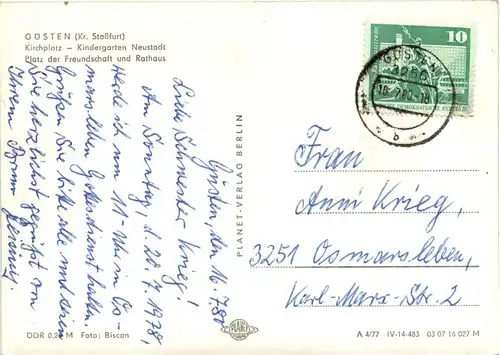 GÜSTEN (Kr. Staßfurt)
Kirchplatz – Kindergarten Neustadt
Platz der Freundschaft und Rathaus
Güsten, den 16.7.80
Liebe Schwester Krieg!
Am Sonntag, d 20.7.1978,
werde ich um 11-Uhr in Os-
marsleben Gottesdienst halten.
Grüßen Sie bitte alle und seien
Sie herzlichst gegrüßt von
Ihrem
DDR 0,20 M Foto: Biscan
PLANET-VERLAG BERLIN
PLANET
10
DEMOKRATISCHE REPUBLIK
GÜSTEN
18.7.80
b
Frau
Anni Krieg,
3251 Osmarsleben,
Karl-Marx-Str. 2
A 4/77 IV-14-483 03 07 16 027 M